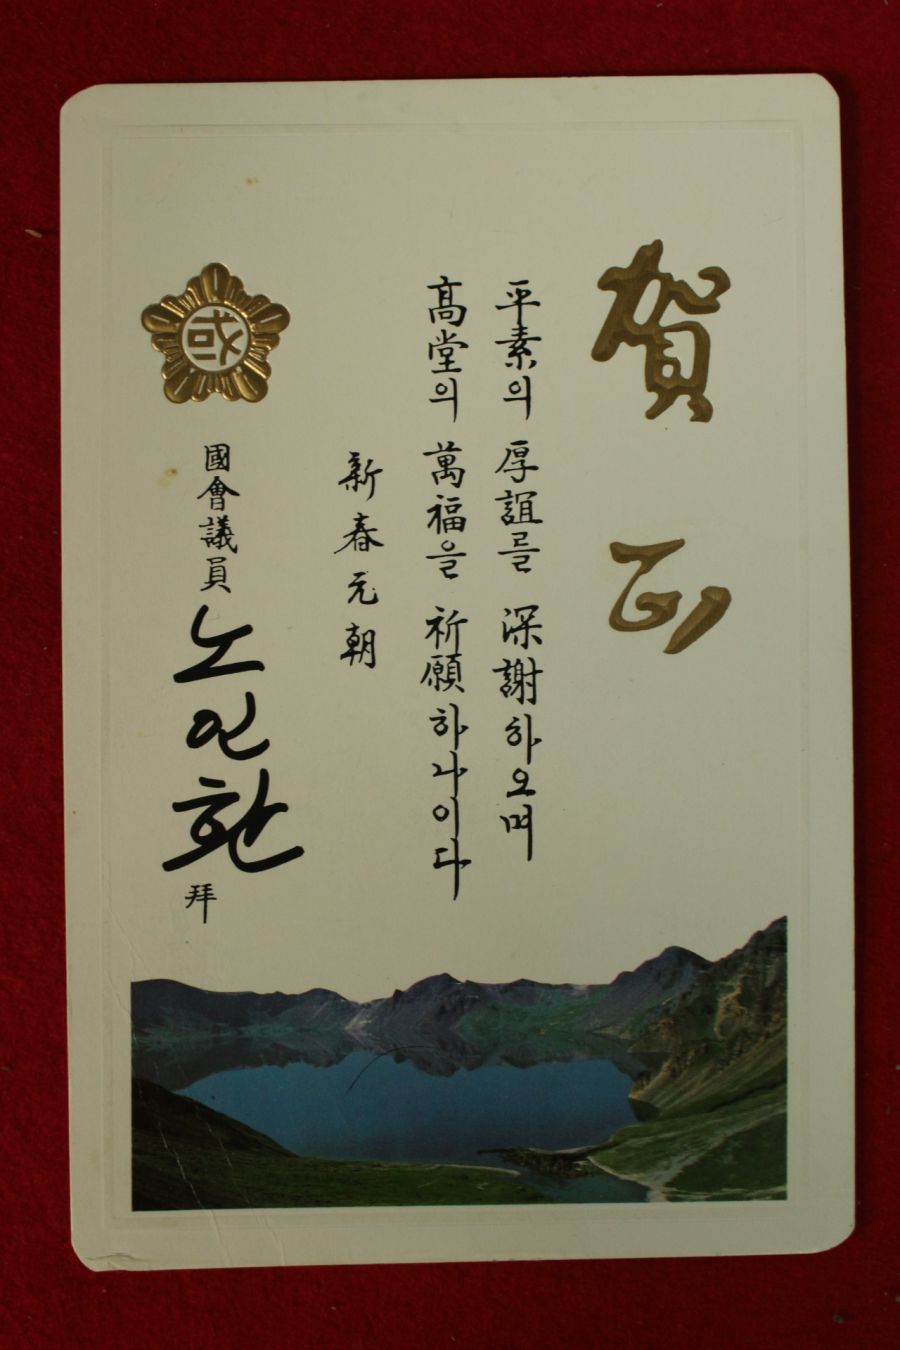 賀正
平素의 厚誼를 深謝하오며
高堂의 萬福을 祈願하나이다
新春元朝
國會議員 노인환 拜